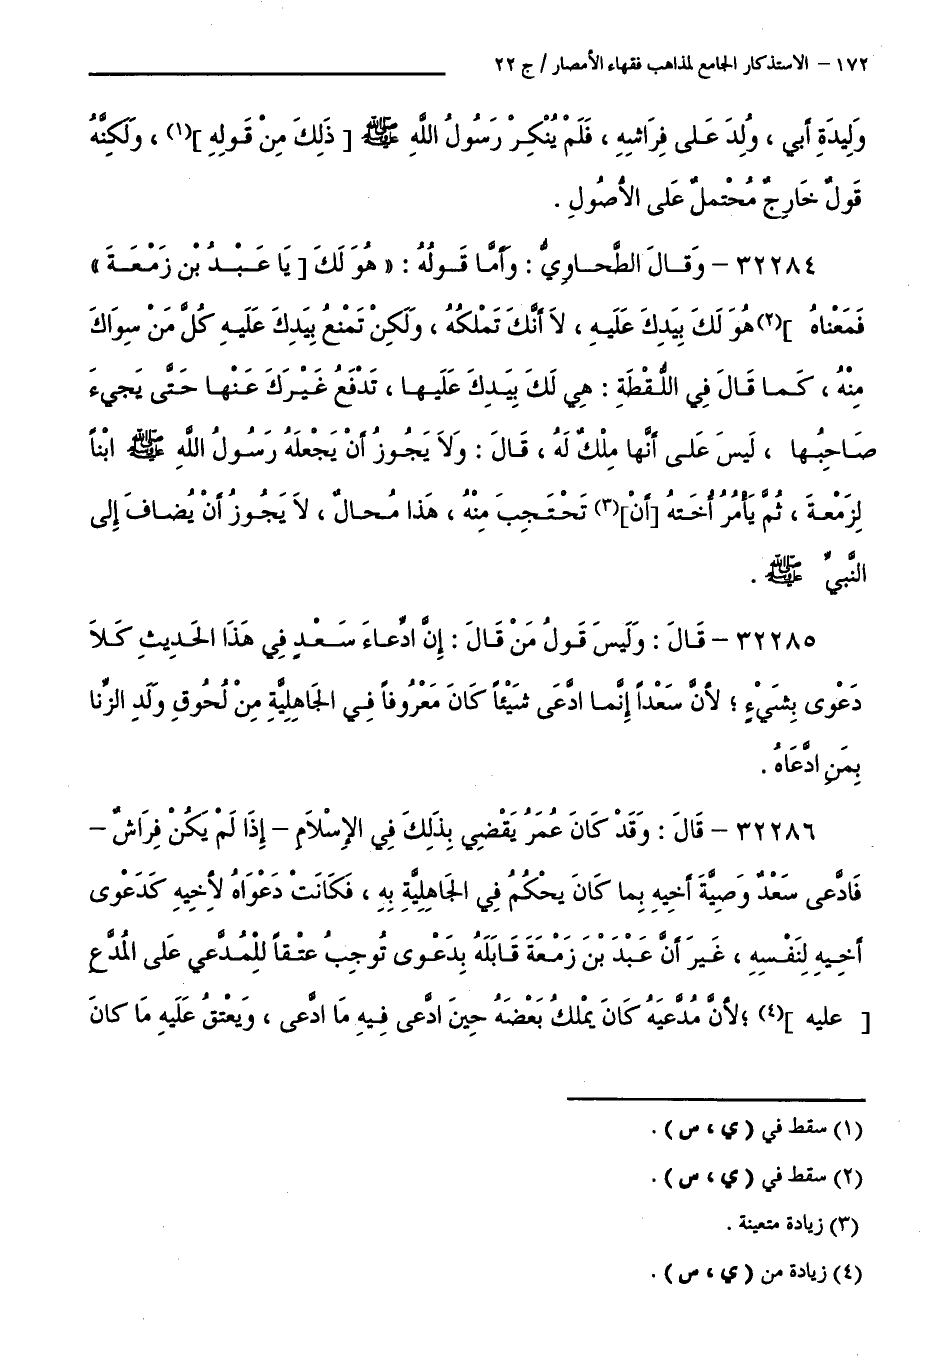 ١٧٢ – الاستذكار الجامع لمذاهب فقهاء الأمصار / ج ٢٢
وَلِيدَةِ أَبي ، وُلِدَ عَلى فِرَاشِهِ ، فَلَمْ يُنْكِرْ رَسُولُ اللَّهِ ﷺ [ ذَلِكَ مِنْ قَولِهِ ](١) ، وَلَكِنَّهُ
قَولٌ خَارِجٌ مُحْتملٌ عَلى الأُصُولِ .
٣٢٢٨٤ – وَقَالَ الطَّحاوِيُّ : وأَمَّا قَولُهُ : « هُوَ لَكَ [ يَا عَبْدُ بْنَ زَمْعَةَ »
فَمَعْناهُ ](٢) هُوَ لَكَ بِيَدِكَ عَلَيهِ ، لاَ أَنَّكَ تَملكُهُ ، وَلَكِنْ تَمْنعُ بِيَدِكَ عَلَيهِ كُلَّ مَنْ سِوَاكَ
مِنْهُ ، كَما قَالَ فِي اللُّقْطَةِ : هِي لَكَ بِيَدِكَ عَلَيها ، تَدْفَعُ غَيْرَكَ عَنْها حَتَّى يَجِيءَ
صَاحِبُها ، لَيسَ عَلى أَنَّها مِلْكٌ لَهُ ، قَالَ : وَلاَ يَجُوزُ أَنْ يَجْعلَهُ رَسُولُ اللَّهِ ﷺ ابْناً
لِزَمْعةَ ، ثُمَّ يَأْمُرُ أُخْتَهُ [أَنْ](٣) تَحْتَجِبَ مِنْهُ ، هَذا مُحالٌ ، لاَ يَجُوزُ أَنْ يُضافَ إِلى
النَّبِيِّ ﷺ .
٣٢٢٨٥ – قَالَ : وَلَيسَ قَولُ مَنْ قَالَ : إِنَّ ادِّعاءَ سَعْدٍ فِي هَذَا الحَديثِ كَلاَ
دَعْوى بِشَيْءٍ ؛ لأَنَّ سَعْداً إِنَّما ادَّعَى شَيْئاً كَانَ مَعْرُوفاً فِي الجَاهِليَّةِ مِنْ لُحُوقِ وَلَدِ الزِّنا
بِمَنِ ادَّعَاهُ .
٣٢٢٨٦ – قَالَ : وَقَدْ كَانَ عُمَرُ يَقْضِي بِذَلِكَ فِي الإِسْلاَمِ – إِذَا لَمْ يَكُنْ فِرَاشٌ –
فَادَّعى سَعْدٌ وَصِيَّةَ أَخيهِ بِما كَانَ يحْكُمُ فِي الجَاهِليَّةِ بِهِ ، فَكَانَتْ دَعْوَاهُ لأَخِيهِ كَدَعْوى
أَخِيهِ لِنَفْسِهِ ، غَيرَ أَنَّ عَبْدَ بْنَ زَمْعَةَ قَابَلَهُ بِدَعْوى تُوجبُ عِتْقاً لِلْمُدَّعي عَلَى الْمُدَّعِ
[ عليه ](٤) ؛ لأَنَّ مُدَّعيَهُ كَانَ يملكُ بَعْضَهُ حِينَ ادَّعى فِيهِ مَا ادَّعى ، وَيَعْتقُ عَلَيهِ مَا كَانَ
(١) سقط في ( ي ، س ) .
(٢) سقط في ( ي ، س ) .
(٣) زيادة متعينة .
(٤) زيادة من ( ي ، س ) .